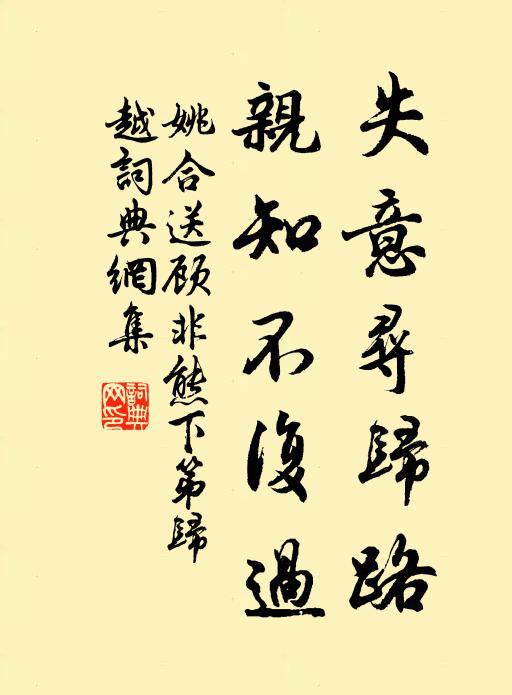 失意尋歸路
親知不復過
姚合送顧非熊下第歸
越詞典網集
詞典
网印